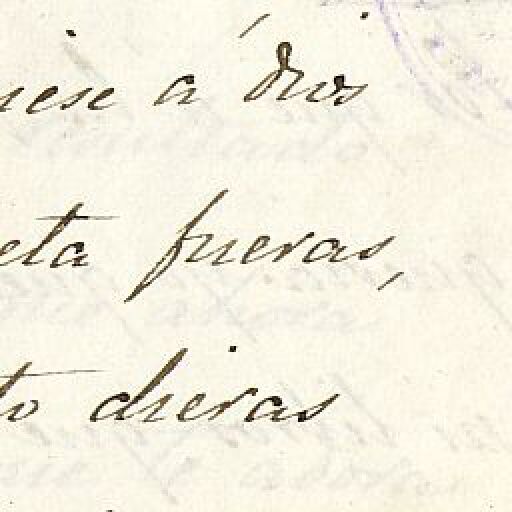 iese á dios
eta fueras,
to dieras